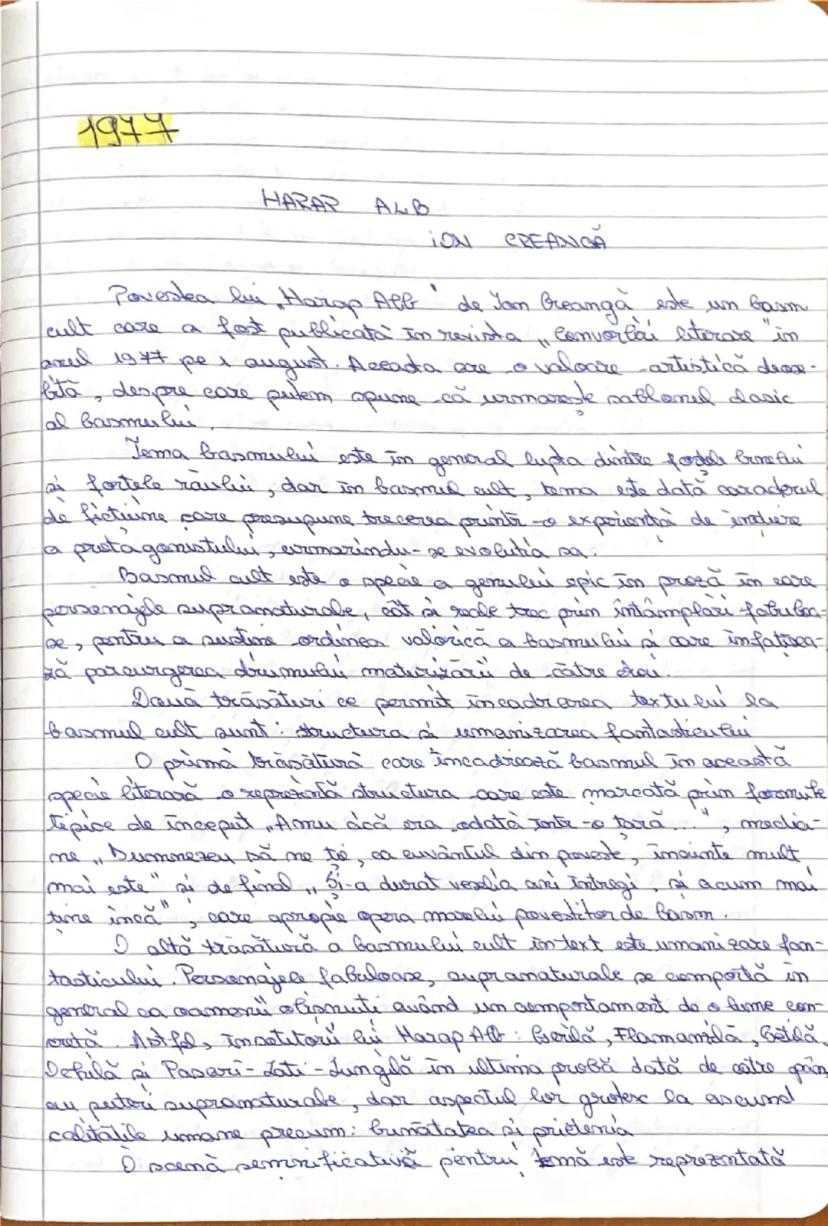 1977
HARAP ALB
ION CREANGĂ
Povestea lui „Harap Alb" de Ion Creangă este un basm
cult care a fost publicată în revista „Convorbiri literare" în
anul 1977 pe 1 august. Aceasta are o valoare artistică deose-
bită, despre care putem spune că urmarește șablonul clasic
al basmului.
Tema basmului este în general lupta dintre forțele binelui
și forțele răului, dar în basmul cult, tema este dată caracterul
de ficțiune care presupune trecerea printr-o experiență de inițiere
a protagonistului, urmarindu-se evoluția sa.
Basmul cult este o specie a genului epic în proză în care
personajele supranaturale, cât și reale trec prin întâmplări fabuloa-
se, pentru a susține ordinea valorică a basmului și care înfățișea-
ză parcurgerea drumului maturizării de către erou.
Două trăsături ce permit încadrarea textului la
basmul cult sunt: structura și umanizarea fantasticului
O primă trăsătură care încadrează basmul în această
specie literară o reprezintă structura care este marcată prin formule
tipice de început „Amu cică era odată într-o țară...", media-
ne „Dumnezeu să ne ție, ca cuvântul din poveste, înainte mult
mai este" și de final „Și-a durat veselia ani întregi, și acum mai
ține încă", care apropie opera marelui povestitor de basm.
O altă trăsătură a basmului cult în text este umanizare fan-
tasticului. Personajele fabuloase, supranaturale se comportă în
general ca oamenii obișnuiți având un comportament de o lume con-
cretă. Astfel, însoțitorii lui Harap Alb: Gerilă, Flamanzilă, Setilă,
Ochilă și Pasari-Lati-Lungilă în ultima probă dată de către
au puteri supranaturale, dar aspectul lor grotesc la ascund
calitățile umane precum: bunătatea și prietenia
O scenă semnificativă pentru temă este reprezentată